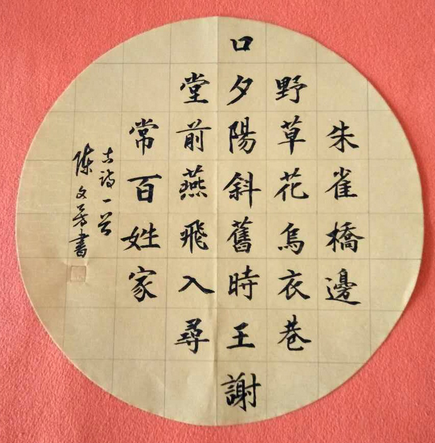 朱雀橋邊
野草花烏衣巷
口夕陽斜舊時王謝
堂前燕飛入尋
常百姓家
古詩一首
陳文芳書